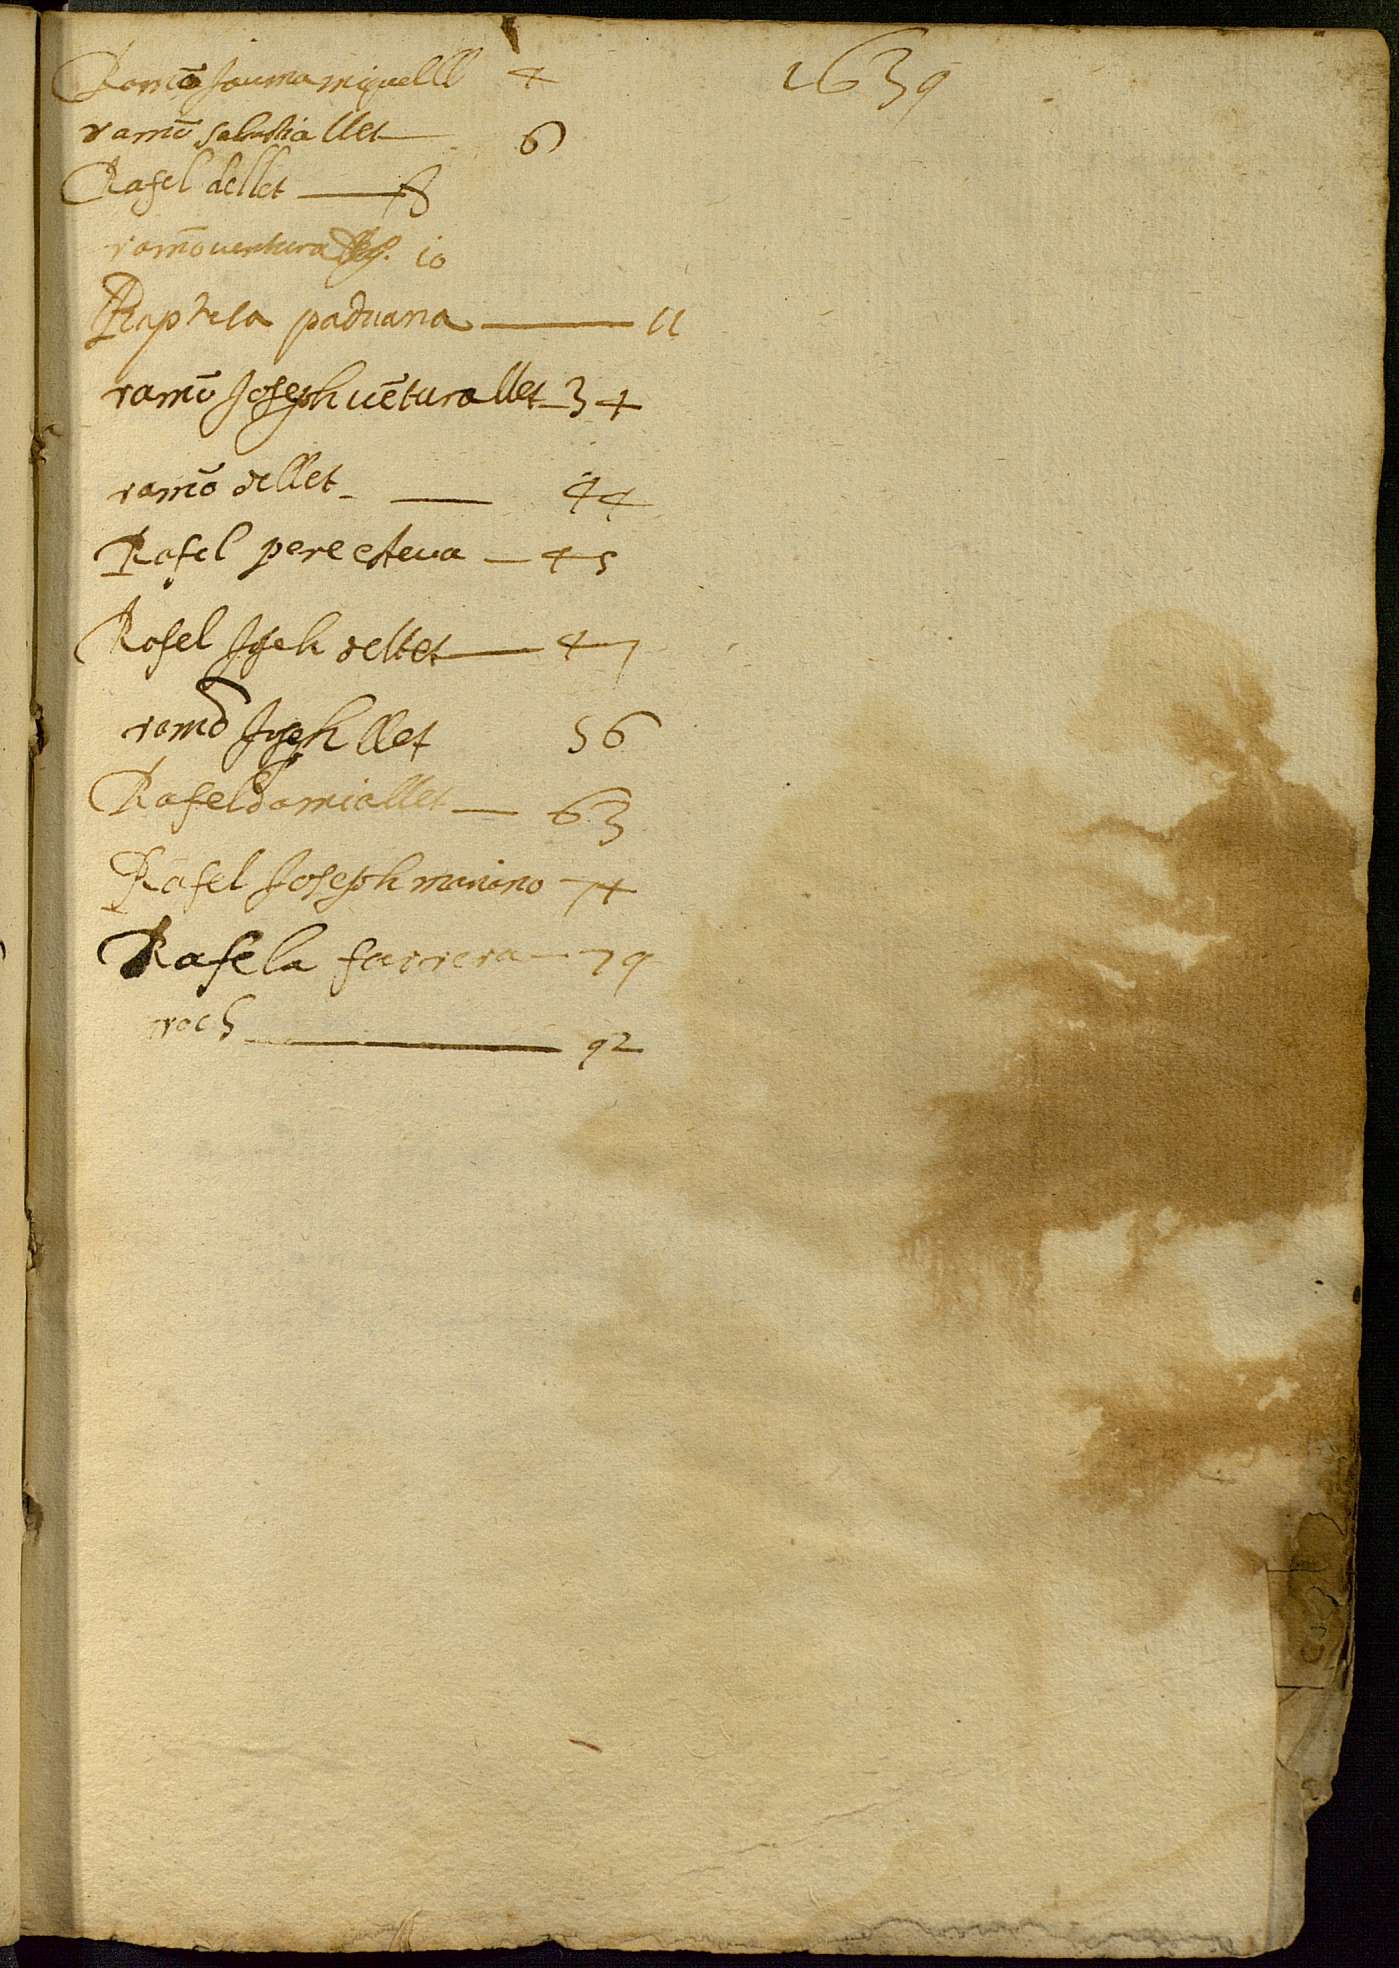 1639
Ramō Jauma miquel ll 4
ramō salvdia llet 6
Rafel dellet 8
ramō ventura 10
Raphela paduana 11
ramō Joseph vētura llet 34
ramō de llet 44
Rafel pere esteva 45
Rafel Jseh de llet 47
ramō Jseph llet 56
Rafel damia llet 63
Rafel Joseph mariano 74
Rafela farrera 79
roch 92